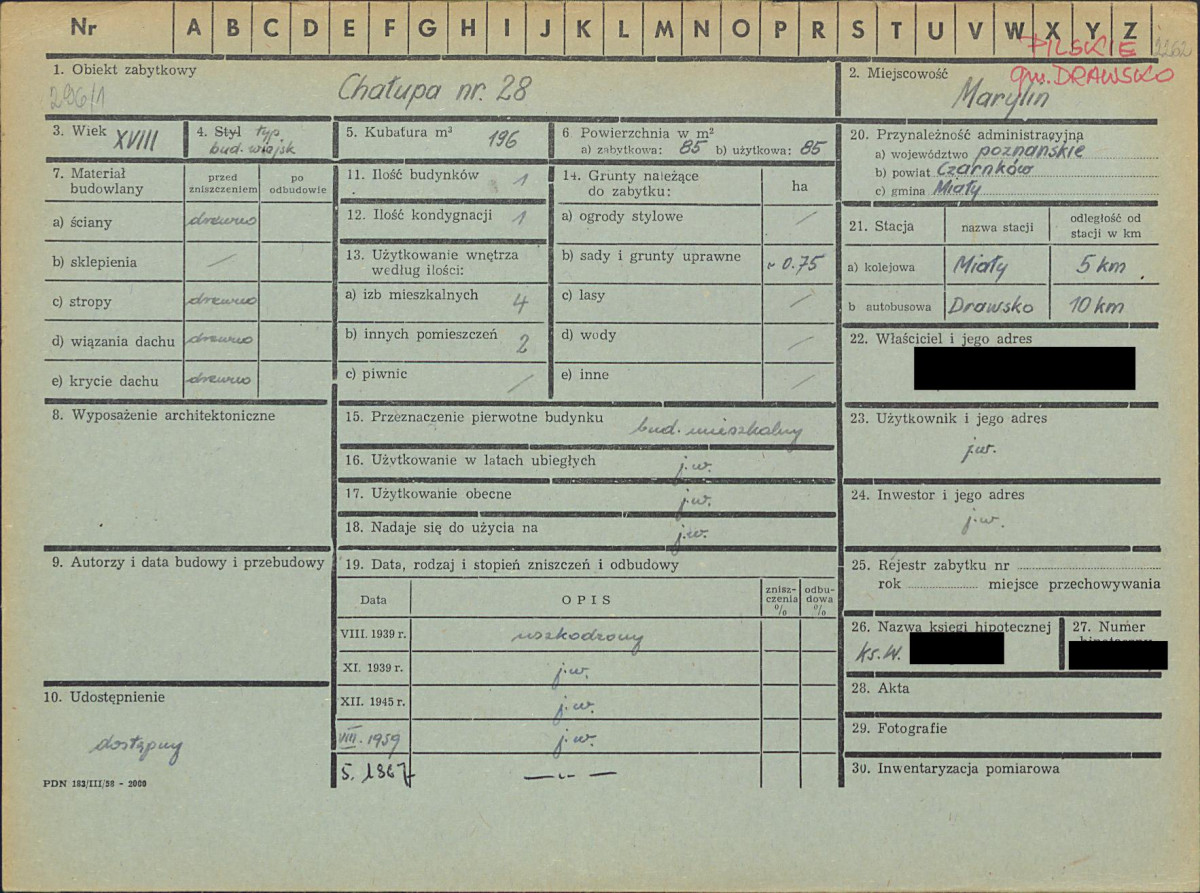 Nr A B C D E F G H I J K L M N O P R S T U V W X Y Z
PILSKIE 2262
gm. DRAWSKO
1. Obiekt zabytkowy
296/1
Chałupa nr. 28
2. Miejscowość
Marylin
3. Wiek XVIII
4. Styl typ.
bud. wiejsk
5. Kubatura m³ 196
6 Powierzchnia w m²
a) zabytkowa: 85 b) użytkowa: 85
20. Przynależność administracyjna
a) województwo poznańskie
b) powiat Czarnków
c) gmina Miały
7. Materiał budowlany
przed zniszczeniem
po odbudowie
a) ściany drewno
b) sklepienia /
c) stropy drewno
d) wiązania dachu drewno
e) krycie dachu drewno
11. Ilość budynków 1
12. Ilość kondygnacji 1
13. Użytkowanie wnętrza
według ilości:
a) izb mieszkalnych 4
b) innych pomieszczeń 2
c) piwnic /
14. Grunty należące
do zabytku:
ha
a) ogrody stylowe /
b) sady i grunty uprawne ~ 0.75
c) lasy /
d) wody /
e) inne /
21. Stacja
nazwa stacji
odległość od
stacji w km
a) kolejowa Miały 5 km
b autobusowa Drawsko 10 km
22. Właściciel i jego adres
8. Wyposażenie architektoniczne
15. Przeznaczenie pierwotne budynku bud. mieszkalny
16. Użytkowanie w latach ubiegłych j.w.
17. Użytkowanie obecne j.w.
18. Nadaje się do użycia na j.w.
23. Użytkownik i jego adres
j.w.
24. Inwestor i jego adres
j.w.
9. Autorzy i data budowy i przebudowy
19. Data, rodzaj i stopień zniszczeń i odbudowy
Data OPIS
znisz-
czenia
%
odbu-
dowa
%
VIII. 1939 r. uszkodzony
XI. 1939 r. j.w.
XII. 1945 r. j.w.
VIII. 1959 j.w.
5. 1867 — „ —
25. Rejestr zabytku nr
rok miejsce przechowywania
26. Nazwa księgi hipotecznej
Ks.W.
27. Numer
28. Akta
29. Fotografie
30. Inwentaryzacja pomiarowa
10. Udostępnienie
dostępny
PDN 183/III/58 - 2000